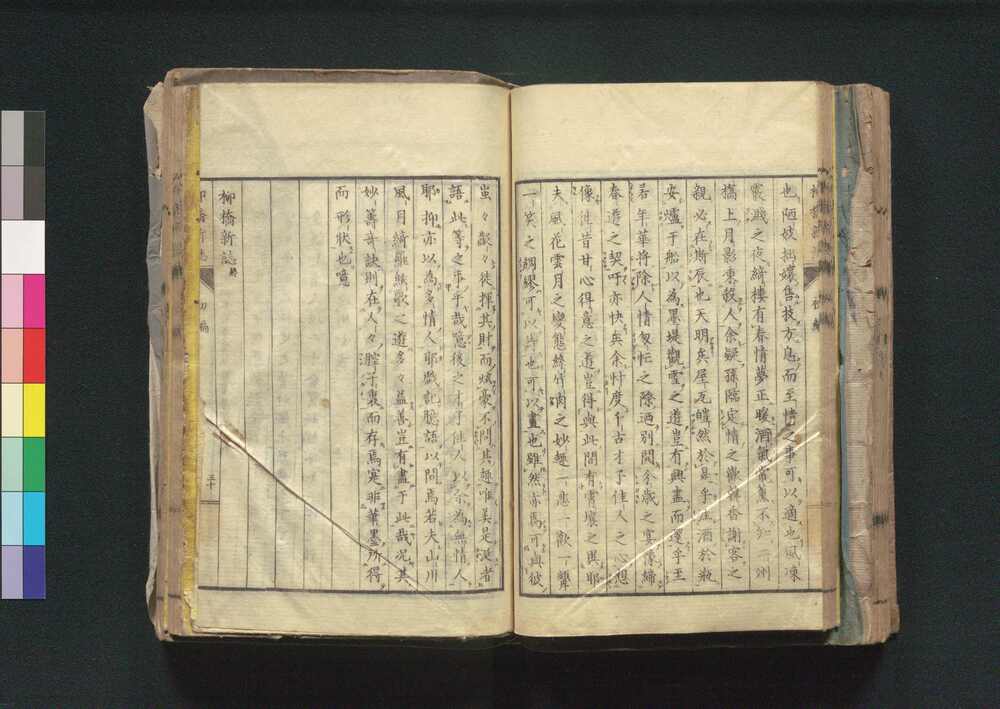 也陋妓拙嬛售技方息而至情之事可以適也風凍
霰濺之夜綺樓有春情夢正暖酒氣常熏不知
橋上月影東殺人余疑孫臨定情之歡韓香謝客之
親必在斯辰也天明矣屋瓦皚然於是乎庄酒於瓶
安爐于船以為墨堤觀雪之遊豈有興盡而還乎至
若年華将除人情匆忙之際過別開分歲之宴係締
春遊之契吁亦快矣余忖度千古才子佳人之心想
像徃昔甘心得意之遊豈得與此間有霄壤之異耶
夫風花雲月之變態絲竹肉之妙趣一悲一歡一顰
一笑之綢繆可以詩也可以畫也雖然亦焉可與彼
蚩々齪々徒揮其財而炫豪不問其趣唯美是涎者
語此等之事乎哉意後之才子佳人以余為無情人
耶抑亦以為多情人耶戯記臆語以問焉若夫山川
風月綺羅絃歌之遊多々益善豈有盡于此哉况其
妙籌奇訣則在人々腔子裏而存焉寔非筆墨所得
而形状也噫
柳橋新誌終
初編
三十